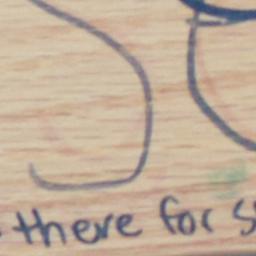 there for